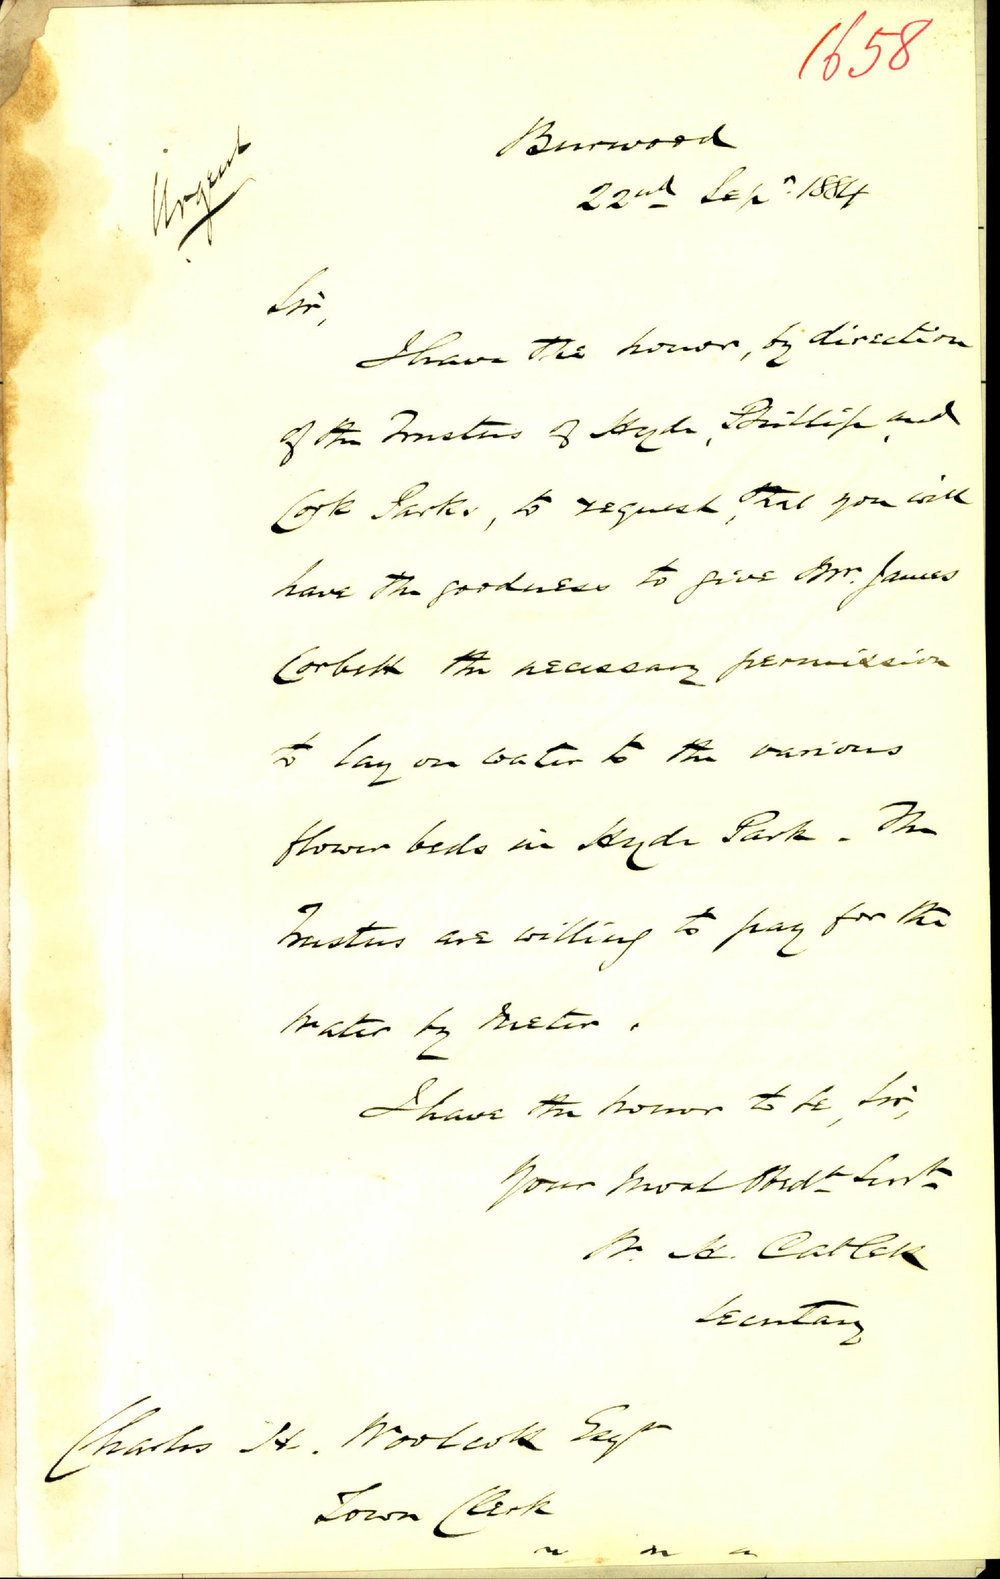 1658
Urgent
Burwood
22nd Sepr. 1884
Sir,
I have the honor, by direction
of the Trustees of Hyde, Phillip, and
Cook Parks, to request, that you will
have the goodness to give Mr. James
Corbett the necessary permission
to lay on water to the various
flower beds in Hyde Park. The
Trustees are willing to pay for the
Water by Meter.
I have the honor to be, Sir,
Your Most Obedt. Servt.
W. H. Catlett
Secretary
Charles H. Woolcott Esqr
Town Clerk